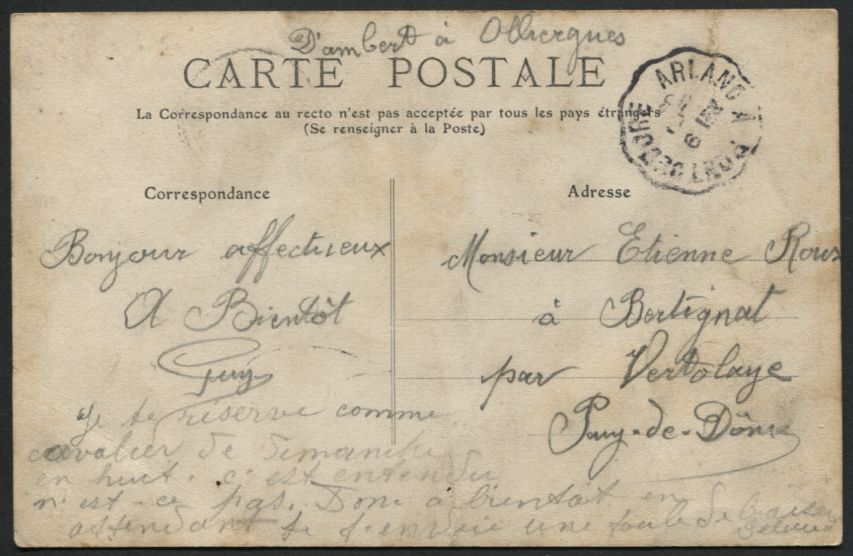 D'ambert à Olliergues
CARTE POSTALE
La Correspondance au recto n'est pas acceptée par tous les pays étrangers
(Se renseigner à la Poste)
ARLANC A PONT DE DORE
Correspondance
Adresse
Bonjour affectueux
A Bientôt
Guy
Je te réserve comme
cavalier de dimanche
en huit. c'est entendu
n'est-ce pas. Donc à bientôt en
attendant je t'envoie une foule de baisers
Monsieur Etienne Roux
à Bertignat
par Vertolaye
Puy-de-Dôme